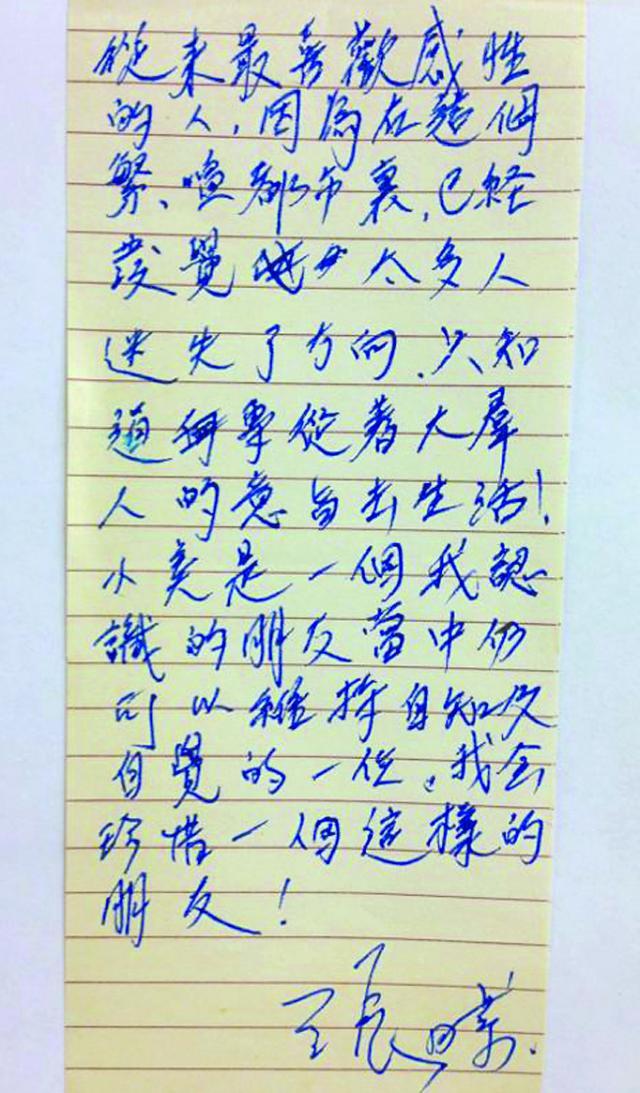 從來最喜歡感性
的人，因為在這個
繁喧都市裏，已經
發覺 太多人
迷失了方向，只知
道 專從著大羣
人的意旨去生活！
小 是一個我認
識的朋友當中仍
可以維持自知及
自覺的一位。我会
珍惜一個這樣的
朋友！